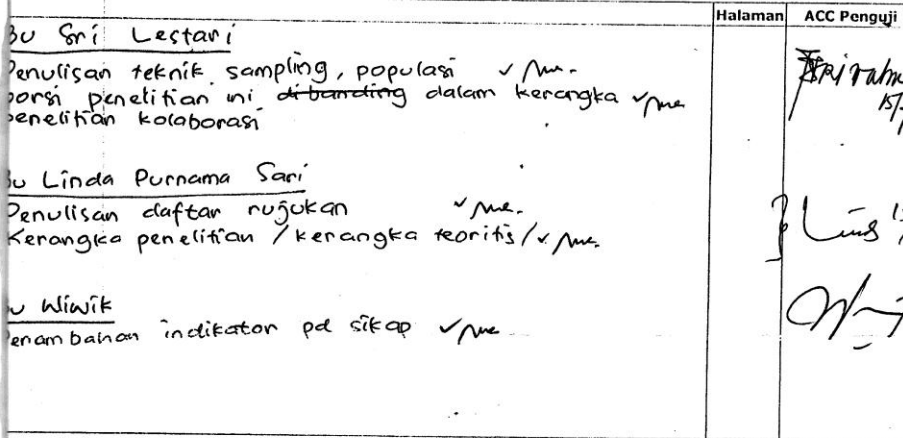 Halaman ACC Penguji
Bu Sri Lestari
Penulisan teknik sampling, populasi ✓
porsi penelitian ini dibanding dalam kerangka ✓
penelitian kolaborasi
15/
Bu Linda Purnama Sari
Penulisan daftar rujukan ✓
Kerangka penelitian / kerangka teoritis / ✓
Bu Wiwik
Penambahan indikator pd sikap ✓